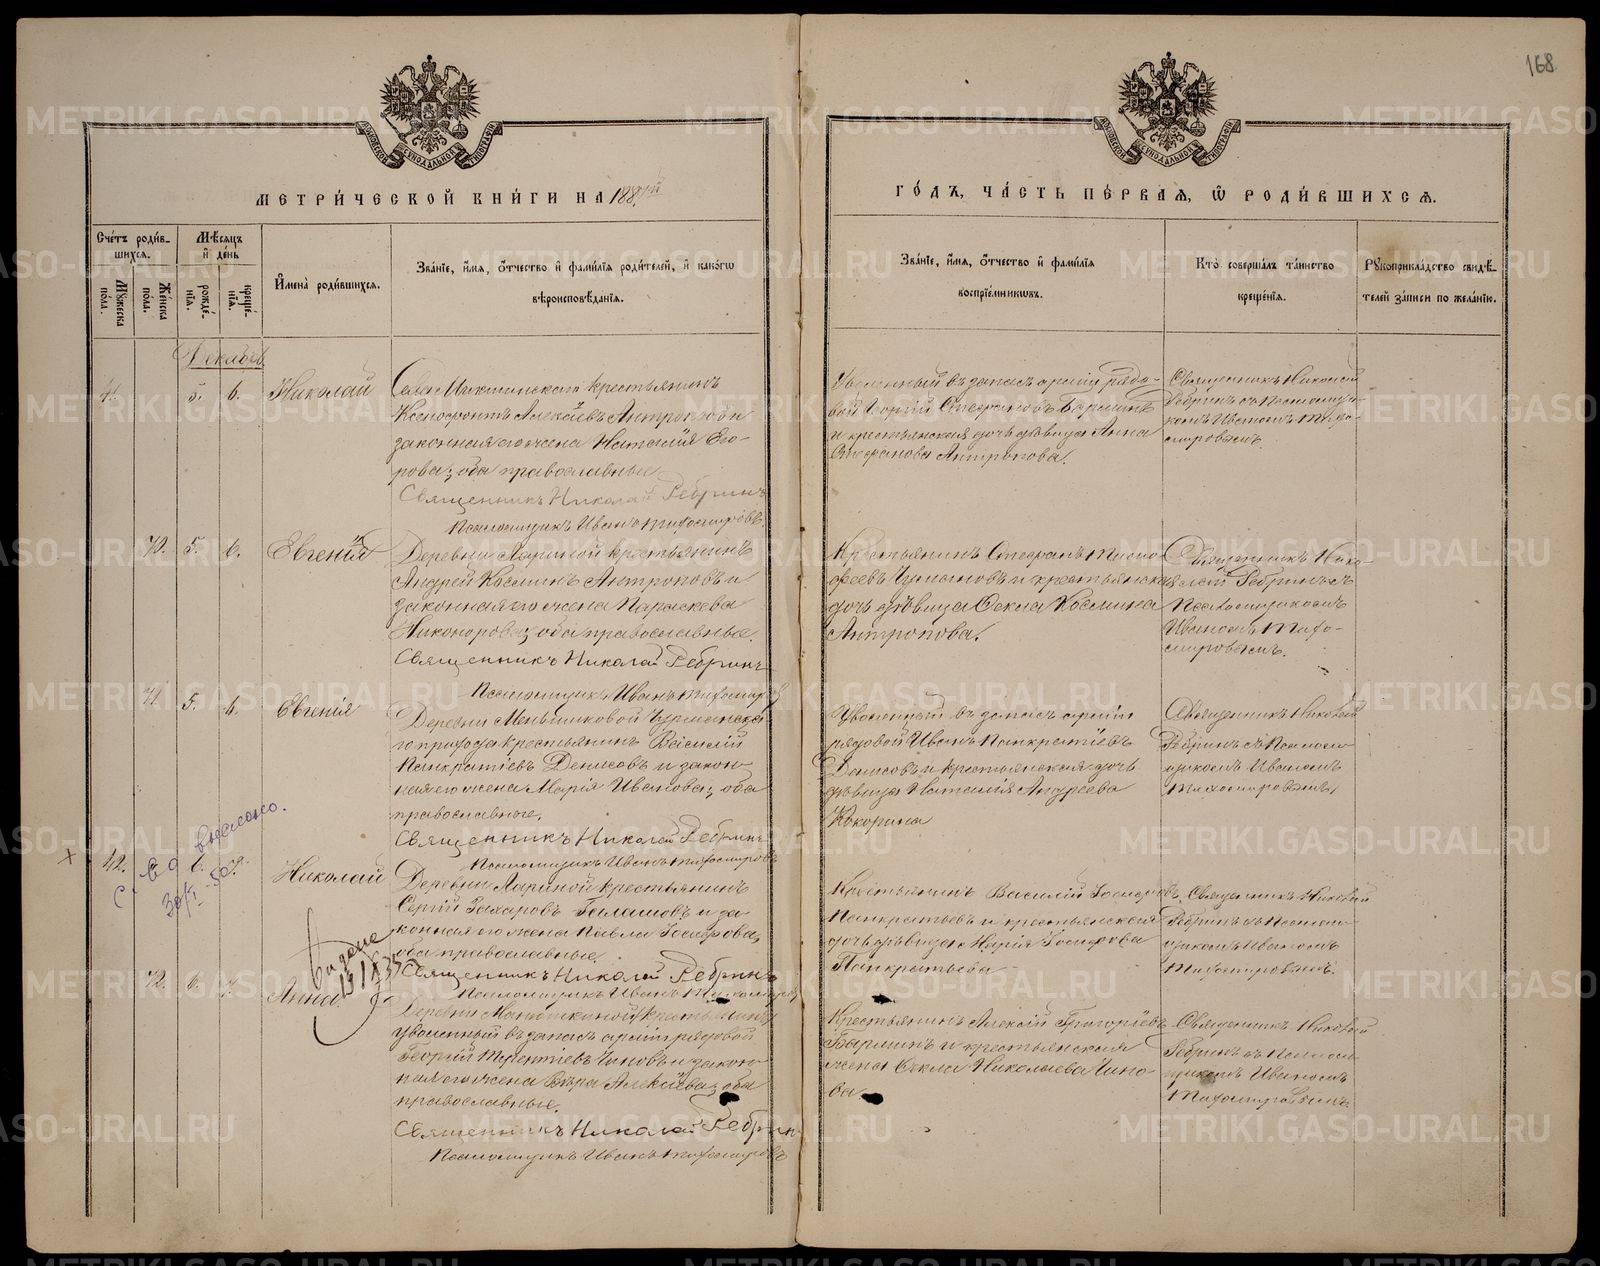 168
МЕТРИ́ЧЕСКОЙ КНИ́ГИ НА 188
ГО́ДЪ, ЧА́СТЬ ПЕ́РВАЯ, Ѡ҆ РОДИ́ВШИХСѦ.
Сче́тъ роди́в-
шихсѧ.
Мꙋ́жеска по́ла.
Же́нска по́ла.
Мѣ́сѧцъ и҆ де́нь
рожде́нїѧ.
креще́нїѧ.
И҆мена̀ роди́вшихсѧ.
Зва́нїе, и҆́мѧ, ѻ҆́тчество и҆ фами́лїѧ роди́телей, и҆ како́гѡ
вѣроисповѣ́данїѧ.
Зва́нїе, и҆́мѧ, ѻ҆́тчество и҆ фами́лїѧ
воспрїе́мникѡвъ.
Кто̀ соверша́лъ та́инство
креще́нїѧ.
Рꙋкоприкла́дство свидѣ́-
телей за́писи по жела́нїю.
5. 6. Николай
крестьянинъ
Ксенофонтъ Алексѣевъ Антроповъ и
законная его жена Наталія Его-
рова; оба православные.
Священникъ Николай Ребринъ
Псаломщикъ Иванъ Тихомировъ.
Уволенный въ запасъ арміи рядо-
вой Георгій Стефановъ Бармин
и крестьянская дочь дѣвица Анна
Стефанова Антропова.
Священникъ Николай
Ребринъ съ Псаломщи-
комъ Иваномъ Тихо-
мировымъ.
40. 5. 6. Евгенія
Деревни Лариной крестьянинъ
Андрей Косминъ Антроповъ и
законная его жена Параскева
Никонорова; оба православные.
Священникъ Николай Ребринъ
Псаломщикъ Иванъ Тихомировъ
Крестьянинъ Стефанъ Тимо-
феевъ и крестьянская
дочь дѣвица Фекла Космина
Антропова.
Священникъ Нико-
лай Ребринъ съ
Псаломщикомъ
Иваномъ Тихо-
мировымъ.
41. 5. 6. Евгенія
Деревни Меньшиковой
го прихода крестьянинъ Василій
Панкратіевъ Денисовъ и закон-
ная его жена Марія Иванова; оба
православные.
Священникъ Николай Ребринъ
Псаломщикъ Иванъ Тихомировъ
Уволенный въ запасъ арміи
рядовой Иванъ Панкратіевъ
Денисовъ и крестьянская дочь
дѣвица Наталія Андреева
Кокорина
Священникъ Николай
Ребринъ съ Псалом-
щикомъ Иваномъ
Тихомировымъ
42. 6. 7. Николай
Деревни Лариной крестьянинъ
Сергій Захаровъ и за-
конная его жена Павла
оба православные.
Священникъ Николай Ребринъ
Псаломщикъ Иванъ Тихомировъ
Крестьянинъ Василій
Панкратьевъ и крестьянская
дочь дѣвица Марія
Панкратьева
Священникъ Николай
Ребринъ съ Псалом-
щикомъ Иваномъ
Тихомировымъ.
42. 6. 7. Анна
Деревни крестьянинъ
уволенный въ запасъ арміи рядовой
Георгій Терентіевъ Чиновъ и закон-
ная его жена Вѣра Алексѣева; оба
православные.
Священникъ Николай Ребрин
Псаломщикъ Иванъ Тихомировъ
Крестьянинъ Алексѣй Григоріевъ
Барминъ и крестьянская
жена Фекла Николаева Чино-
ва
Священникъ Николай
Ребринъ съ Псалом-
щикомъ Иваномъ
Тихомировымъ.
METRIKI.GASO-URAL.RU